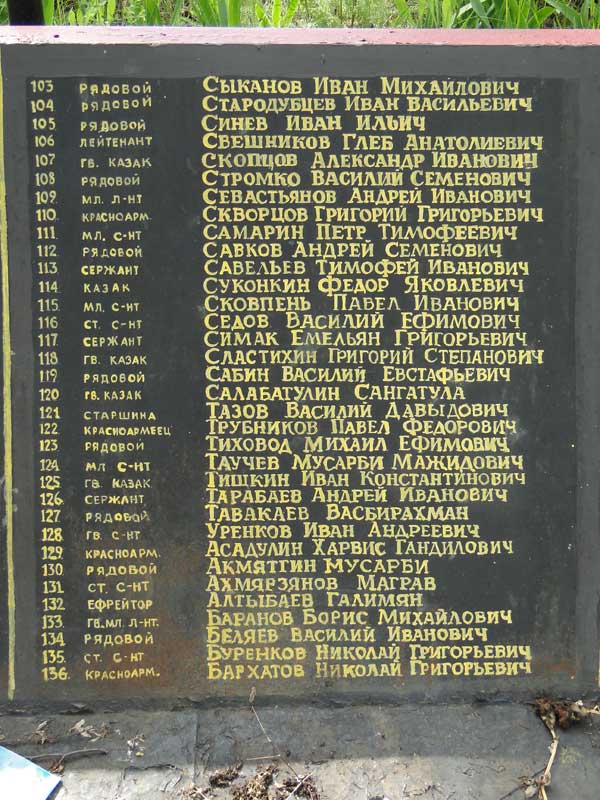 103 РЯДОВОЙ СЫКАНОВ ИВАН МИХАЙЛОВИЧ
104 РЯДОВОЙ СТАРОДУБЦЕВ ИВАН ВАСИЛЬЕВИЧ
105 РЯДОВОЙ СИНЕВ ИВАН ИЛЬИЧ
106 ЛЕЙТЕНАНТ СВЕШНИКОВ ГЛЕБ АНАТОЛИЕВИЧ
107 ГВ. КАЗАК СКОПЦОВ АЛЕКСАНДР ИВАНОВИЧ
108 РЯДОВОЙ СТРОМКО ВАСИЛИЙ СЕМЕНОВИЧ
109. МЛ. Л-НТ СЕВАСТЬЯНОВ АНДРЕЙ ИВАНОВИЧ
110. КРАСНОАРМ. СКВОРЦОВ ГРИГОРИЙ ГРИГОРЬЕВИЧ
111. МЛ. С-НТ САМАРИН ПЕТР ТИМОФЕЕВИЧ
112 РЯДОВОЙ САВКОВ АНДРЕЙ СЕМЕНОВИЧ
113. СЕРЖАНТ САВЕЛЬЕВ ТИМОФЕЙ ИВАНОВИЧ
114 КАЗАК СУКОНКИН ФЕДОР ЯКОВЛЕВИЧ
115. МЛ. С-НТ СКОВПЕНЬ ПАВЕЛ ИВАНОВИЧ
116 СТ. С-НТ СЕДОВ ВАСИЛИЙ ЕФИМОВИЧ
117. СЕРЖАНТ СИМАК ЕМЕЛЬЯН ГРИГОРЬЕВИЧ
118 ГВ. КАЗАК СЛАСТИХИН ГРИГОРИЙ СТЕПАНОВИЧ
119. РЯДОВОЙ САБИН ВАСИЛИЙ ЕВСТАФЬЕВИЧ
120 ГВ. КАЗАК САЛАБАТУЛИН САНГАТУЛА
121 СТАРШИНА ТАЗОВ ВАСИЛИЙ ДАВЫДОВИЧ
122 КРАСНОАРМЕЕЦ ТРУБНИКОВ ПАВЕЛ ФЕДОРОВИЧ
123. РЯДОВОЙ ТИХОВОД МИХАИЛ ЕФИМОВИЧ
124. МЛ С-НТ ТАУЧЕВ МУСАРБИ МАЖИДОВИЧ
125 ГВ. КАЗАК ТИШКИН ИВАН КОНСТАНТИНОВИЧ
126. СЕРЖАНТ ТАРАБАЕВ АНДРЕЙ ИВАНОВИЧ
127 РЯДОВОЙ ТАВАКАЕВ ВАСБИРАХМАН
128 ГВ. С-НТ УРЕНКОВ ИВАН АНДРЕЕВИЧ
129. КРАСНОАРМ. АСАДУЛИН ХАРВИС ГАНДИЛОВИЧ
130 РЯДОВОЙ АКМЯТГИН МУСАРБИ
131 СТ. С-НТ АХМЯРЗЯНОВ МАГРАВ
132 ЕФРЕЙТОР АЛТЫБАЕВ ГАЛИМЯН
133. ГВ. МЛ. Л-НТ. БАРАНОВ БОРИС МИХАЙЛОВИЧ
134 РЯДОВОЙ БЕЛЯЕВ ВАСИЛИЙ ИВАНОВИЧ
135. СТ. С-НТ БУРЕНКОВ НИКОЛАЙ ГРИГОРЬЕВИЧ
136. КРАСНОАРМ. БАРХАТОВ НИКОЛАЙ ГРИГОРЬЕВИЧ